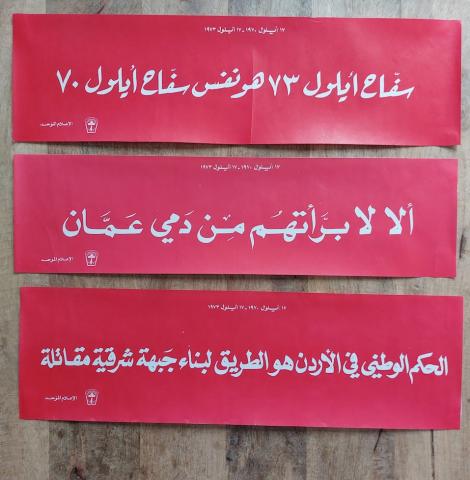 ١٧ أيلول ١٩٧٠ - ١٧ أيلول ١٩٧٣
سفّاح أيلول ٧٣ هو نفس سفّاح أيلول ٧٠
الإعلام الموحد
١٧ أيلول ١٩٧٠ - ١٧ أيلول ١٩٧٣
ألا لا برّأتهم من دمي عمّان
الإعلام الموحد
١٧ أيلول ١٩٧٠ - ١٧ أيلول ١٩٧٣
الحكم الوطني في الأردن هو الطريق لبناء جبهة شرقية مقاتلة
الإعلام الموحد